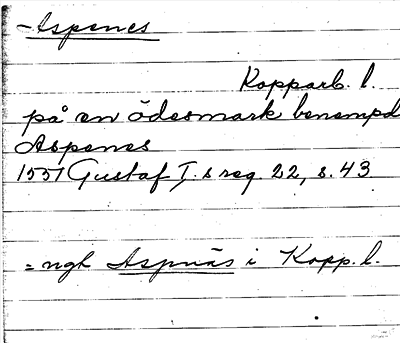 -Aspenes
Kopparb. l.
på en ödesmark benempd
Aspenes
1551 Gustaf I.s reg. 22, s. 43
= ngt Aspnäs i Kopp. l.